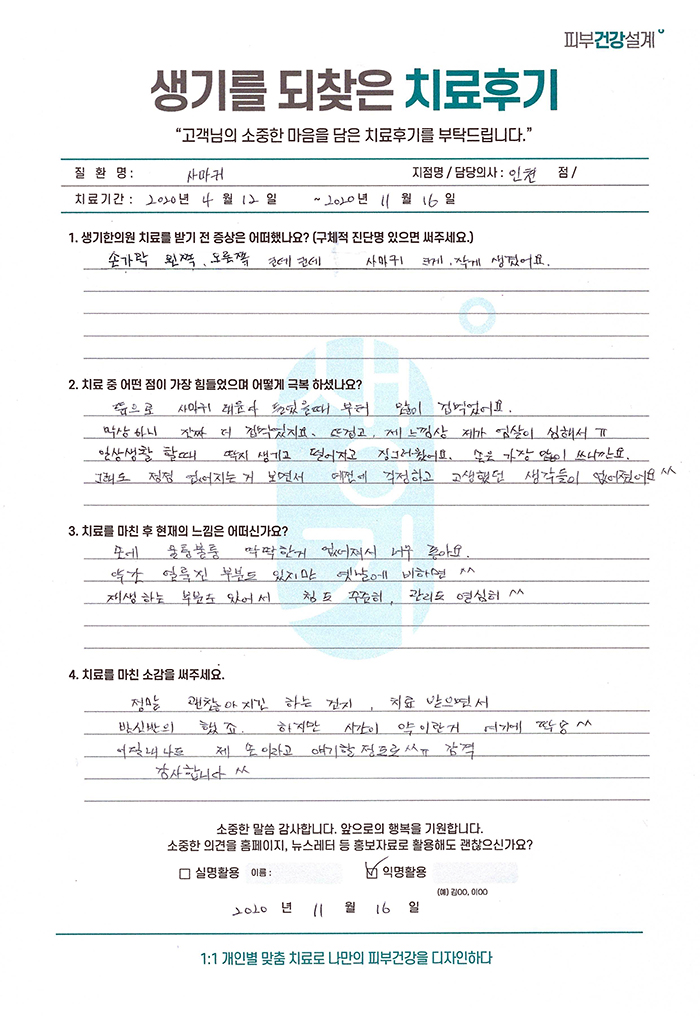 피부건강설계
생기를 되찾은 치료후기
“고객님의 소중한 마음을 담은 치료후기를 부탁드립니다.”
질 환 명 : 사마귀 지점명 / 담당의사 : 인천 점 /
치료기간 : 2020년 4 월 12 일 ~2020년 11 월 16 일
1. 생기한의원 치료를 받기 전 증상은 어떠했나요? (구체적 진단명 있으면 써주세요.)
손가락 왼쪽, 오른쪽 군데군데 사마귀 크게, 작게 생겼어요.
2. 치료 중 어떤 점이 가장 힘들었으며 어떻게 극복 하셨나요?
뜸으로 사마귀 태운다 들었을때 부터 많이 겁먹었어요.
막상하니 진짜 더 겁먹었지요. 뜨겁고, 제 느낌상 제가 엄살이 심해서 ㅠ
일상생활 할때 딱지 생기고 떨어지고 징그러웠어요. 손은 가장 많이 쓰니깐요.
그래도 점점 없어지는거 보면서 예전에 걱정하고 고생했던 생각들이 없어졌어요 ^^
3. 치료를 마친 후 현재의 느낌은 어떠신가요?
손에 울퉁불퉁 딱딱한거 없어져서 너무 좋아요.
약간 얼룩진 부분도 있지만 옛날에 비하면 ^^
재생하는 부분도 있어서 침도 꾸준히, 관리도 열심히 ^^
4. 치료를 마친 소감을 써주세요.
정말 괜찮아지긴 하는 건지, 치료 받으면서
반신반의 했죠. 하지만 시간이 약이란거 여기에 딱송 ^^
어딜내나도 제 손이라고 얘기할정도로 ^^ㅠ 감격
감사합니다 ^^
소중한 말씀 감사합니다. 앞으로의 행복을 기원합니다.
소중한 의견을 홈페이지, 뉴스레터 등 홍보자료로 활용해도 괜찮으신가요?
실명활용 이름 : 익명활용
(예) 김OO, 이OO
2020 년 11 월 16 일
1:1 개인별 맞춤 치료로 나만의 피부건강을 디자인하다
생기